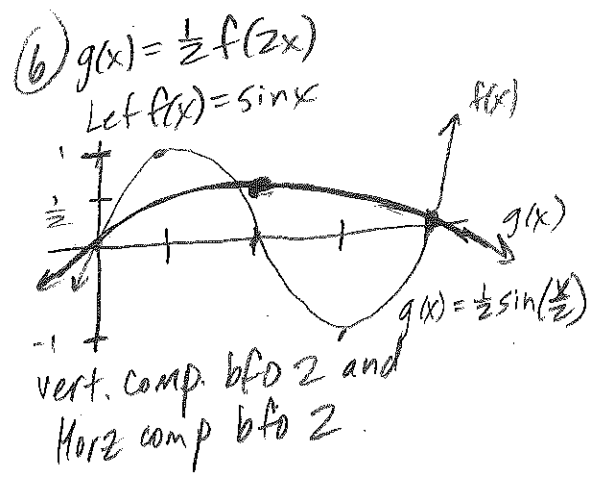 (6) g(x) = 1/2 f(2x)
Let f(x) = sinx
f(x)
1
1/2
g(x)
g(x) = 1/2 sin(x/2)
-1
vert. comp. bfo 2 and
Horz comp bfo 2.